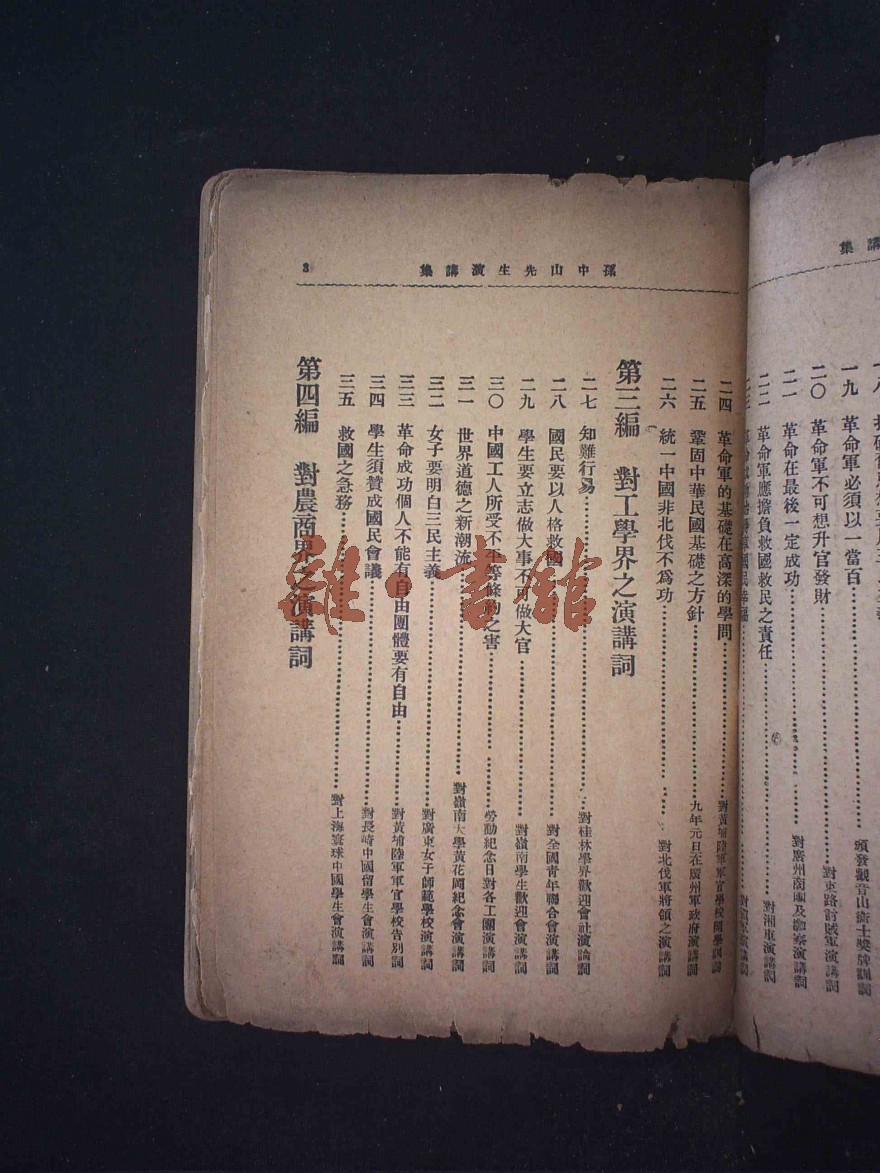 講集
一九 革命軍必須以一當百 頒發觀音山衛士獎牌訓詞
二〇 革命軍不可想升官發財 對東路討賊軍演講詞
二一 革命在最後一定成功
二二 革命軍應擔負救國救民之責任 對湘軍演講詞
孫中山先生演講集 3
二四 革命軍的基礎在高深的學問 對黃埔陸軍軍官學校開學訓詞
二五 鞏固中華民國基礎之方針 九年元旦在廣州軍政府演講詞
二六 統一中國非北伐不爲功 對北伐軍將領之演講詞
第三編 對工學界之演講詞
二七 知難行易 對桂林學界歡迎會社演論詞
二八 國民要以人格救國 對全國青年聯合會演講詞
二九 學生要立志做大事不可做大官 對嶺南學生歡迎會演講詞
三〇 中國工人所受不平等條約之害 勞動紀念日對各工團演講詞
三一 世界道德之新潮流 對嶺南大學黃花岡紀念會演講詞
三二 女子要明白三民主義 對廣東女子師範學校演講詞
三三 革命成功個人不能有自由團體要有自由 對黃埔陸軍軍官學校告別詞
三四 學生須贊成國民會議 對長崎中國留學生會演講詞
三五 救國之急務 對上海寰球中國學生會演講詞
第四編 對農商界之演講詞
雜·書館